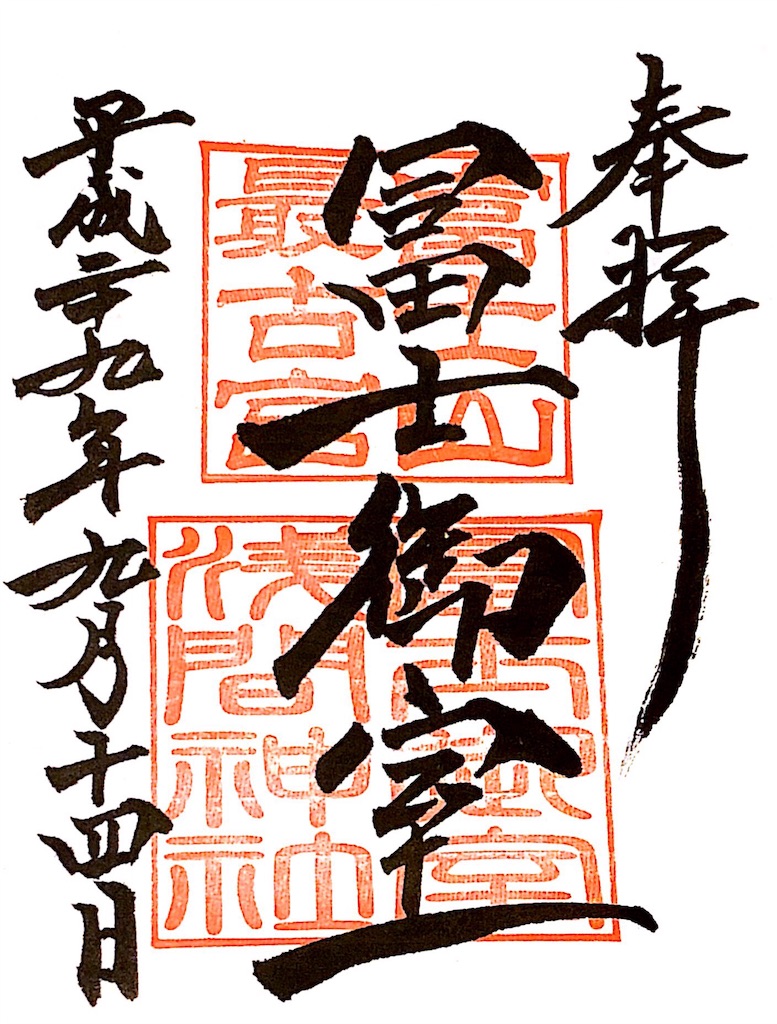 奉拝
富士山
最古宮
冨士御室
冨士御室
浅間神社
平成二十九年九月十四日